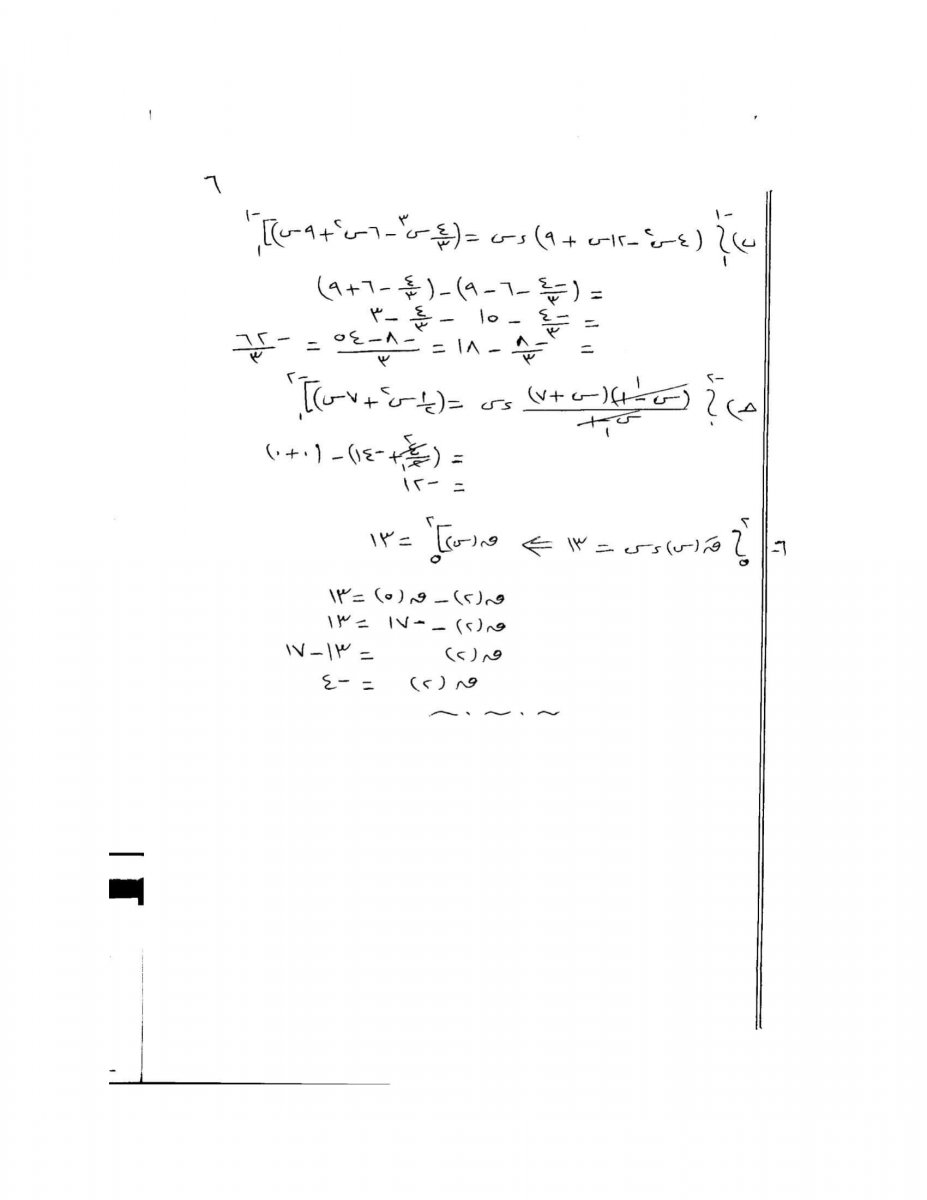 ٦
ن) ∫₁⁻¹ (٤س² - ١٢س + ٩) ءس = (٤/٣ س³ - ٦س² + ٩س)]₁⁻¹
= (-٤/٣ - ٦ - ٩) - (٤/٣ - ٦ + ٩)
= -٤/٣ - ١٥ - ٤/٣ - ٣
= -٨/٣ - ١٨ = (-٨ - ٥٤)/٣ = -٦٢/٣
هـ) ∫.⁻² (س - ١)(س + ٧)/(س - ١) ءس = (١/٢ س² + ٧س)].⁻²
= (٤/٢ + -١٤) - (٠ + ٠)
= -١٢
٦- ∫₅² قَ(س) ءس = ١٣ ⇐ ق(س)]₅² = ١٣
ق(٢) - ق(٥) = ١٣
ق(٢) - -١٧ = ١٣
ق(٢) = ١٣ - ١٧
ق(٢) = -٤